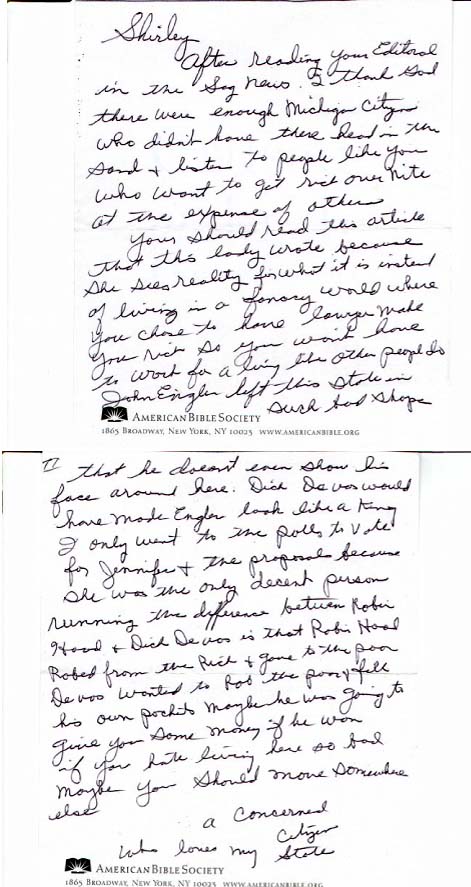 Shirley
After reading your Editoral
in the Sag News. I thank God
there were enough Michigan Citizens
who didn't have there head in the
sand & listen to people like you
who want to get rich over nite
at the expense of others
Your should read this article
that this lady wrote because
she sees reality for what it is instead
of living in a fancy world where
you chose to have lawyer make
you rich so you won't have
to work for a living like other people do
John Engler left this State in
such bad shape
AMERICAN BIBLE SOCIETY
1865 BROADWAY, NEW YORK, NY 10023 WWW.AMERICANBIBLE.ORG
II that he doesn't even show his
face around here. Dick Devos would
have made Engler look like a King
I only went to the polls to Vote
for Jennifer & the proposals because
she was the only decent person
running the difference between Robin
Hood & Dick Devos is that Robin Hood
Robed from the Rich & gave to the poor
Devos wanted to Rob the poor & fill
his own pockets maybe he was going to
give you some money if he won
if you hate living here so bad
maybe you should move somewhere
else
a Concerned
Citizen
who loves my State
AMERICAN BIBLE SOCIETY
1865 BROADWAY, NEW YORK, NY 10023 WWW.AMERICANBIBLE.ORG